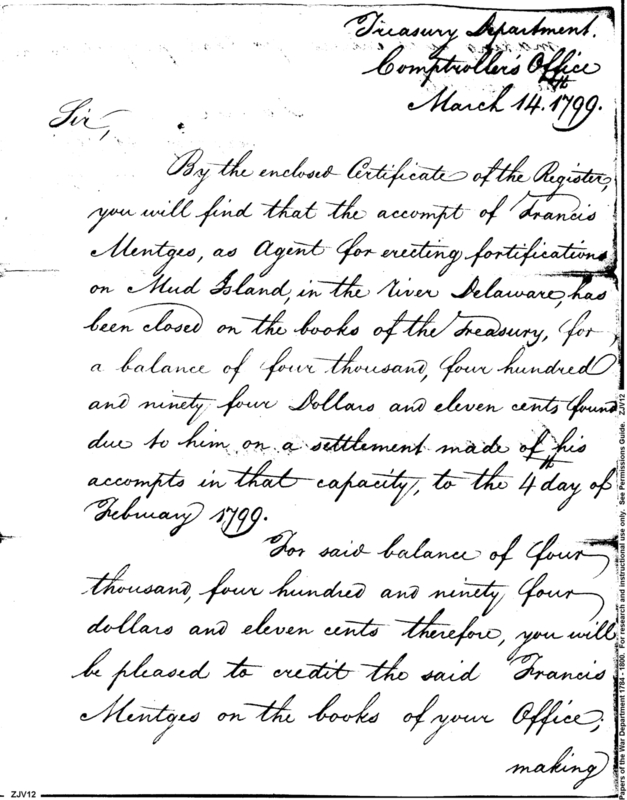 Treasury Department.
Comptroller's Office
March 14.th 1799.
Sir,
By the enclosed Certificate of the Register,
you will find that the accompt of Francis
Mentges, as Agent for erecting fortifications
on Mud Island, in the River Delaware, has
been closed on the books of the Treasury, for
a balance of four thousand, four hundred
and ninety four Dollars and eleven cents found
due to him on a settlement made of his
accompts in that capacity, to the 4th day of
February 1799.
For said balance of four
thousand, four hundred and ninety four
dollars and eleven cents therefore, you will
be pleased to credit the said Francis
Mentges on the books of your Office,
making
ZJV12
Papers of the War Department 1784 - 1800. For research and instructional use only. See Permissions Guide. ZJV12